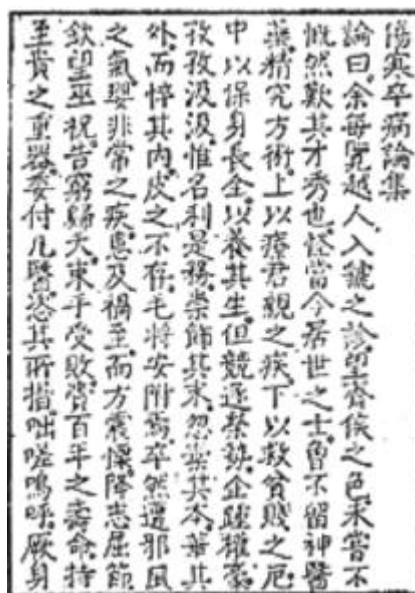 傷寒卒病論集
論曰余每覽越人入虢之診望齊侯之色未嘗不
慨然歎其才秀也怪當今居世之士曾不留神醫
藥精究方術上以療君親之疾下以救貧賤之厄
中以保身長全以養其生但競逐榮勢企踵權豪
孜孜汲汲惟名利是務崇飾其末忽棄其本華其
外而悴其內皮之不存毛將安附焉卒然遭邪風
之氣嬰非常之疾患及禍至而方震慄降志屈節
欽望巫祝告窮歸天束手受敗賚百年之壽命持
至貴之重器委付凡醫恣其所措咄嗟嗚呼厥身